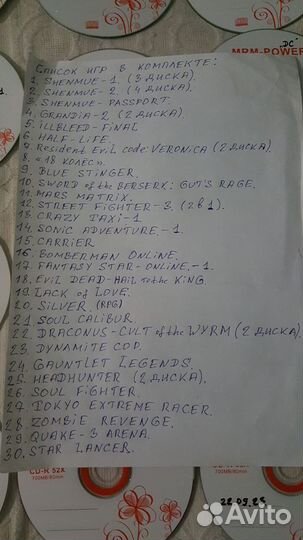 "DC"
MRM-POWER
Список игр в комплекте:
1. SHENMUE-1 (3 диска).
2. SHENMUE-2. (4 диска).
3. SHENMUE-PASSPORT.
4. GRANDIA-2 (2 диска).
5. ILLBLEED-FINAL
6. HALF-LIFE.
7. Resident Evil code: VERONICA (2 диска).
8. «18 колёс».
9. BLUE STINGER.
10. SWORD of the BERSERK: GUT'S RAGE.
11. MARS MATRIX.
12. STREET FIGHTER-3. (2 в 1).
13. CRAZY TAXI-1
14. SONIC ADVENTURE.-1.
15. CARRIER
16. BOMBERMAN ONLINE.
17. FANTASY STAR-ONLINE.-1.
18. EVIL DEAD-HAIL to the KING
19. LACK of LOVE.
20. SILVER. (RPG)
21. SOUL CALIBUR.
22. DRACONUS-CULT of the WYRM (2 диска).
23. DYNAMITE COP.
24. GAUNTLET LEGENDS.
25. HEADHUNTER (2 диска).
26. SOUL FIGHTER.
27. TOKYO EXTREME RACER.
28. ZOMBIE REVENGE.
29. QUAKE-3 ARENA.
30. STAR LANCER.
CD-R 52X
700MB/80min
CD-R 52X
700MB/80min
Avito